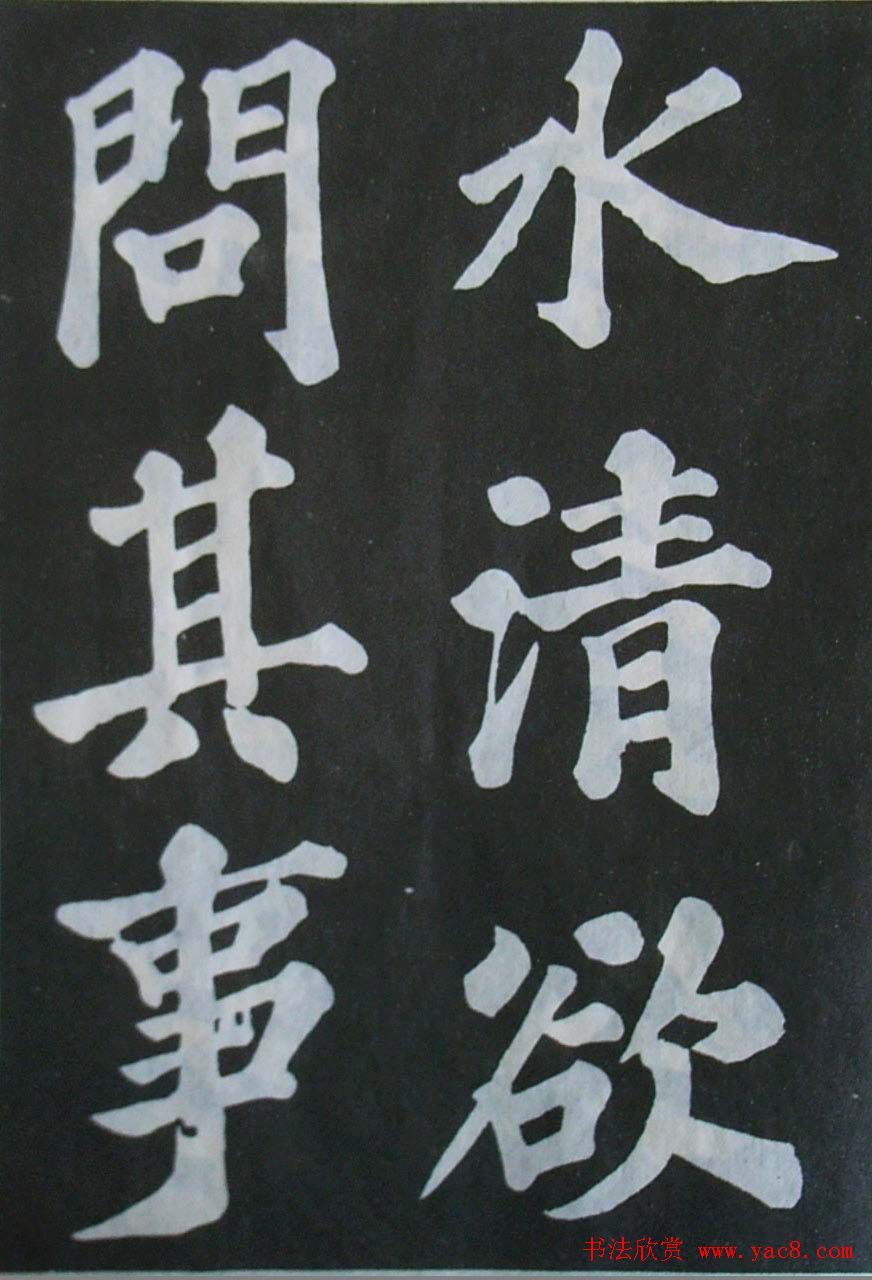 水清欲
問其事
书法欣赏 www.yac8.com